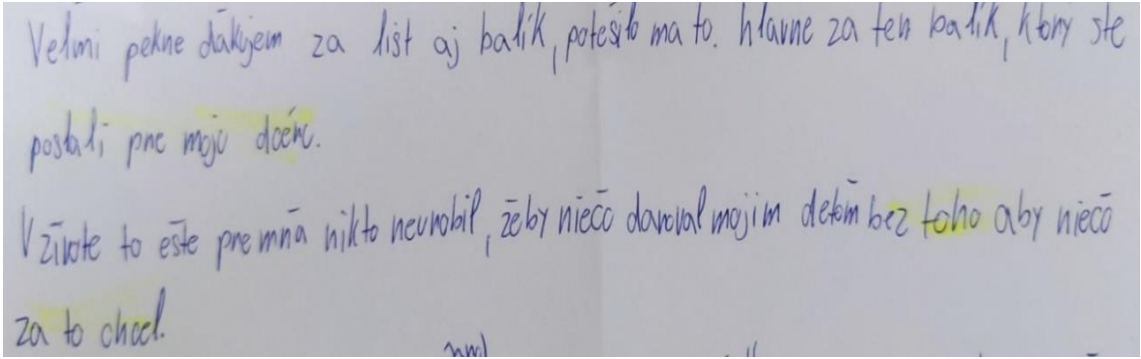 Veľmi pekne ďakujem za list aj balík, potešilo ma to. hlavne za ten balík, ktorý ste
poslali pre moju dcéru.
V živote to ešte pre mňa nikto neurobil, žeby niečo daroval mojim deťom bez toho aby niečo
za to chcel.